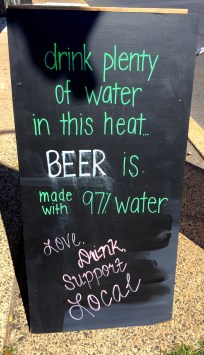 drink plenty
of water
in this heat...
BEER is
made with 97% water
Love,
Drink,
Support
Local